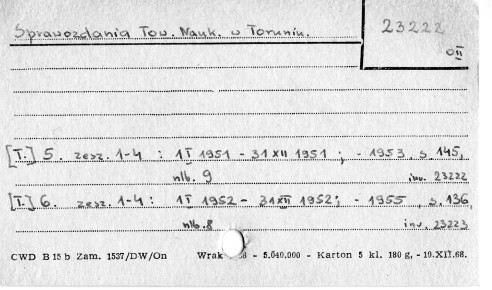 Sprawozdania Tow. Nauk. w Toruniu.
23222
OII
[T.] 5. zesz. 1-4 : 1 I 1951 - 31 XII 1951 ; - 1953, s. 145,
nlb. 9 inv. 23222
[T.] 6. zesz. 1-4 : 1 I 1952 - 31 XII 1952; - 1955, s. 136
nlb. 8 inv. 23223
CWD B 15 b Zam. 1537/DW/On 68 - 5.040.000 - Karton 5 kl. 180 g, - 10.XII.68.